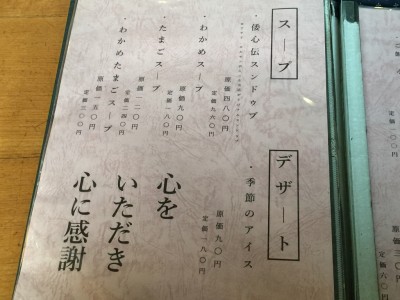 スープ
・倭心伝スンドゥブ
原価四八〇円
定価九六〇円
・わかめスープ
原価九〇円
定価一八〇円
・たまごスープ
原価一二〇円
定価二四〇円
・わかめたまごスープ
原価一五〇円
定価三〇〇円
デザート
・季節のアイス
原価九〇円
定価一八〇円
心を
いただき
心に感謝